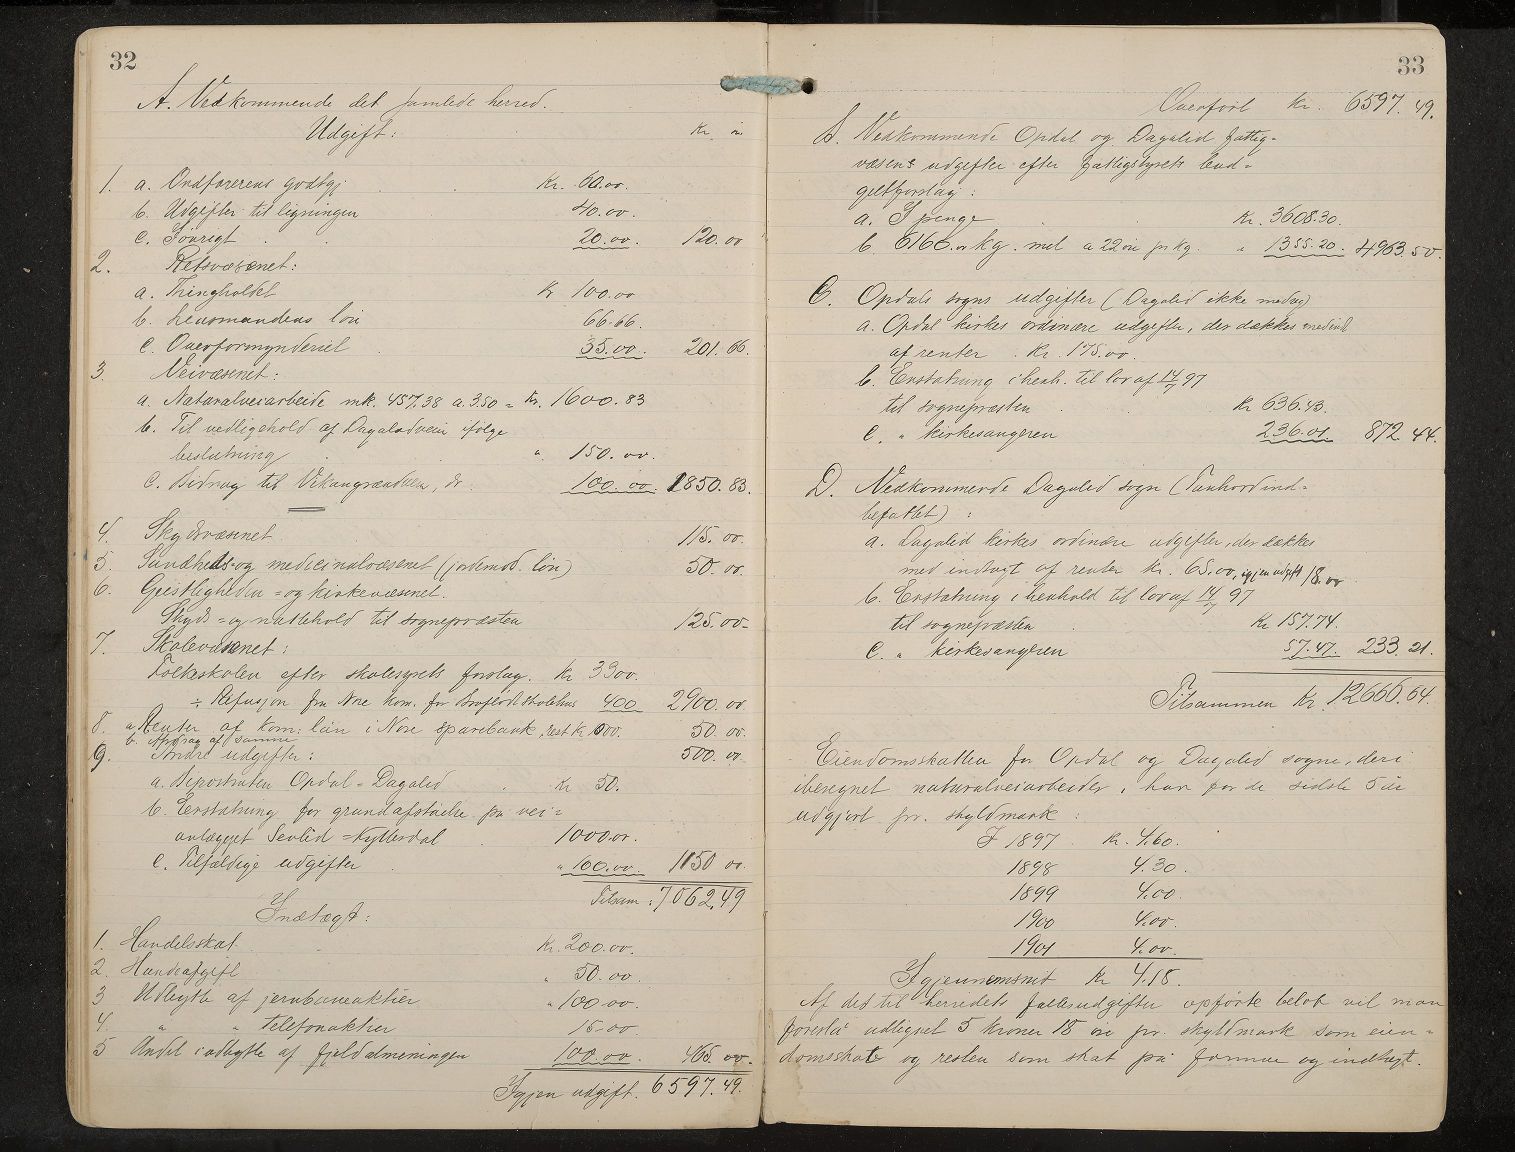 32
A. Vedkommende det samlede herred.
Udgift: Kr. ør.
1. a. Ordførerens godtgj. Kr. 60.00.
b. Udgifter til ligningen 40.00.
c. Iøvrigt 20.00. 120.00
2. Retsvæsenet:
a. Thingholdet Kr 100.00
b. Lensmandens løn 66.66.
c. Overformynderiet 35.00. 201.66.
3. Veivæsenet:
a. Naturalveiarbeide mk. 457.38 a 3.50 = Kr. 1600.83
b. Til vedligehold af Dagalidveien ifølge
beslutning " 150.00.
c. Bidrag til Vikangrændalen, do 100.00. 1850.83.
4. Skydsvæsenet 115.00.
5. Sundheds- og medicinalvæsenet (jordemod. løn) 50.00.
6. Geistligheden = og kirkevæsenet.
Skyds = og nattehold til sognepræsten 125.00-
7. Skolevæsenet:
Folkeskolen efter skolestyrets forslag. Kr 3300.
÷ Refusjon fra Nore kom. for skolehus 400 2900.00.
8. a. Renter af kom. lån i Nore sparebank, rest Kr. 50.00.
b. Afdrag af samme
9. Andre udgifter: 500.00
a. Biposttruten Opdal = Dagalid Kr 50.
b. Erstatning for grundafståelse på vei =
anlægget Sevlid = Hyttesdal 1000.00.
c. Tilfældige udgifter " 100.00. 1150 00.
Tilsam: 7062.49
Indtægt:
1. Handelsskat Kr. 200.00.
2. Hundeafgift " 50.00.
3 Udbytte af jernbaneaktier " 100.00.
4. " " telefonaktier 15.00.
5 Andel i udbytte af fjeldalmeningen 100.00. 465.00.
Igjen udgift. 6597.49.
33
Overført Kr. 6597.49.
B. Vedkommende Opdal og Dagalid fattig-
væsens udgifter efter fattigstyrets bud-
getforslag:
a. I penge Kr. 3608.30.
b. 6160 kg. mel a 22 øre pr kg. " 1355.20. 4963.50.
C. Opdals sogns udgifter (Dagalid ikke medreg)
a. Opdal kirkes ordinære udgifter, der dækkes med ind
af renter Kr. 175.00.
b. Erstatning i henh. til lov af 14/7 97
til sognepræsten Kr 636.43.
c. " kirkesangeren 236.01. 872.44.
D. Vedkommende Dagalid sogn (Tunhovd ind-
befattet):
a. Dagalid kirkes ordinære udgifter, der dækkes
med indtægt af renter Kr. 65.00, igjen udgift 18.00
b. Erstatning i henhold til lov af 14/7 97
til sognepræsten Kr 157.74.
c. " kirkesangeren 57.47. 233.21.
Tilsammen Kr. 12666.64.
Eiendomsskatten for Opdal og Dagalid sogne, deri
iberegnet naturalveiarbeider, har for de sidste 5 år
udgjort pr. skyldmark:
I 1897 Kr. 4.60.
1898 4.30.
1899 4.00.
1900 4.00.
1901 4.00.
Igjennemsnit Kr 4.18.
Af det til herredets fællesudgifter opførte beløb vil man
foreslå udlignet 5 kroner 18 øre pr. skyldmark som eien-
domsskat og resten som skat på formue og indtægt.